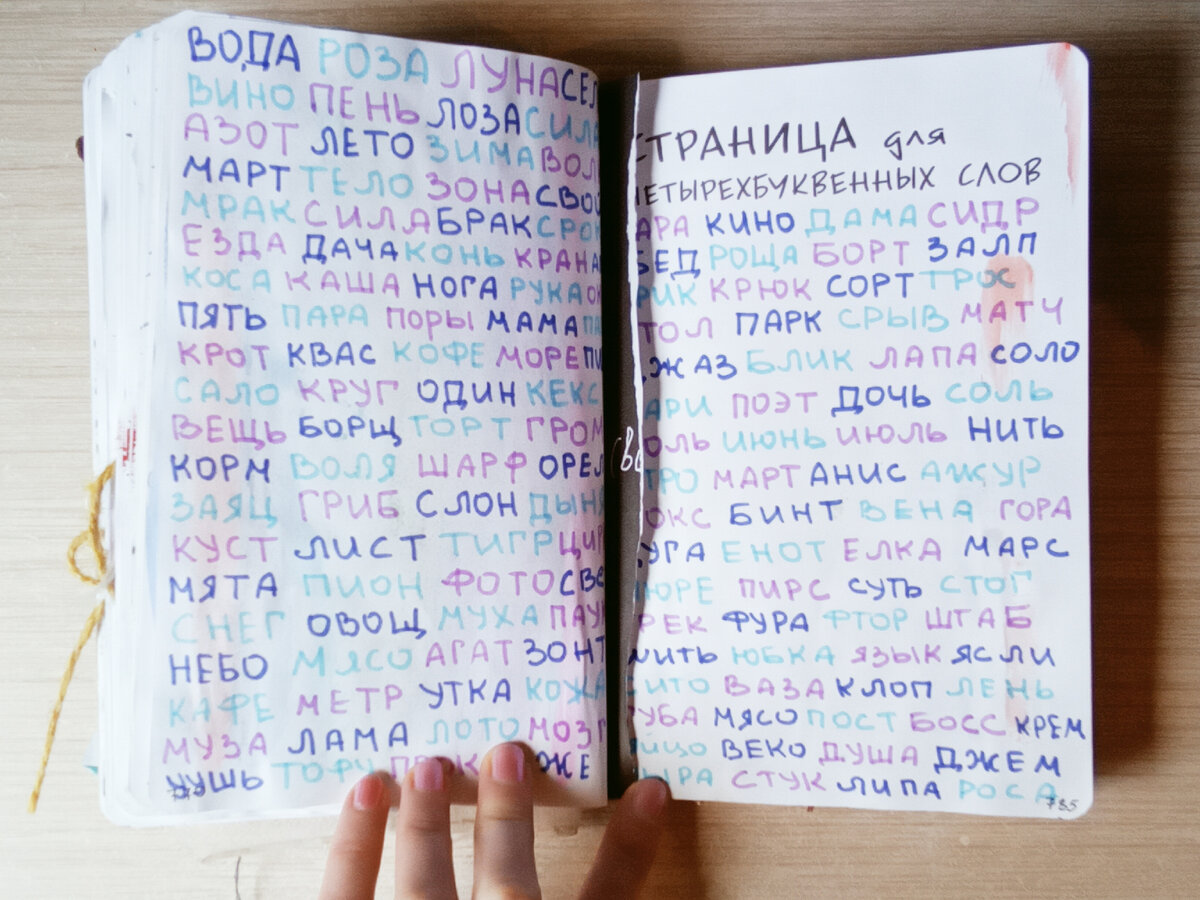 ВОДА РОЗА ЛУНА
ВИНО ПЕНЬ ЛОЗА СИЛА
АЗОТ ЛЕТО ЗИМА
МАРТ ТЕЛО ЗОНА
МРАК СИЛА БРАК СРОК
ЕЗДА ДАЧА КОНЬ КРАН
КОСА КАША НОГА РУКА
ПЯТЬ ПАРА ПОРЫ МАМА
КРОТ КВАС КОФЕ МОРЕ
САЛО КРУГ ОДИН КЕКС
ВЕЩЬ БОРЩ ТОРТ ГРОМ
КОРМ ВОЛЯ ШАРФ ОРЕЛ
ЗАЯЦ ГРИБ СЛОН ДЫНЯ
КУСТ ЛИСТ ТИГР
МЯТА ПИОН ФОТО
СНЕГ ОВОЩ МУХА ПАУК
НЕБО МЯСО АГАТ ЗОНТ
КАФЕ МЕТР УТКА КОЖА
МУЗА ЛАМА ЛОТО МОЗГ
ЧУШЬ
СТРАНИЦА для
ЧЕТЫРЕХБУКВЕННЫХ СЛОВ
КИНО ДАМА СИДР
РОЩА БОРТ ЗАЛП
КРЮК СОРТ ТРОС
ПАРК СРЫВ МАТЧ
ДЖАЗ БЛИК ЛАПА СОЛО
ПОЭТ ДОЧЬ СОЛЬ
ИЮНЬ ИЮЛЬ НИТЬ
МАРТ АНИС АЖУР
БИНТ ВЕНА ГОРА
ЕНОТ ЕЛКА МАРС
ПИРС СУТЬ СТОГ
ФУРА ФТОР ШТАБ
ЮБКА ЯЗЫК ЯСЛИ
ВАЗА КЛОП ЛЕНЬ
МЯСО ПОСТ БОСС КРЕМ
ЯЙЦО ВЕКО ДУША ДЖЕМ
СТУК ЛИПА РОСА